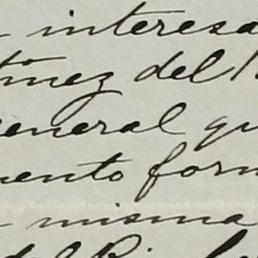 interesa
tínez del
eneral qu
ento form
misma
del Rio